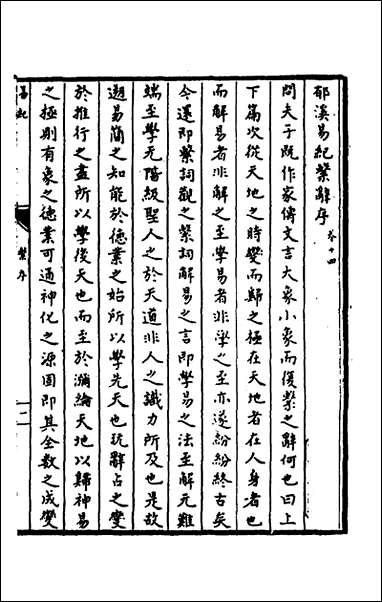 郁溪易紀繫辭序 卷十四
問夫子既作彖傳文言大象小象而復繫之辭何也曰上
下篇次從天地之時變而歸之極在天地者在人身者也
而解易者非解之至學易者非學之至亦遂紛紛終古矣
今還即繫詞觀之繫詞解易之言即學易之法至解元難
端至學元階級聖人之於天道非人之識力所及也是故
遡易簡之知能於德業之始所以學先天也玩辭占之變
於推行之盡所以學後天也而至於瀰綸天地以歸神易
之極則有象之德業可通神化之源固即其全數之成變
易紀
繫序
一